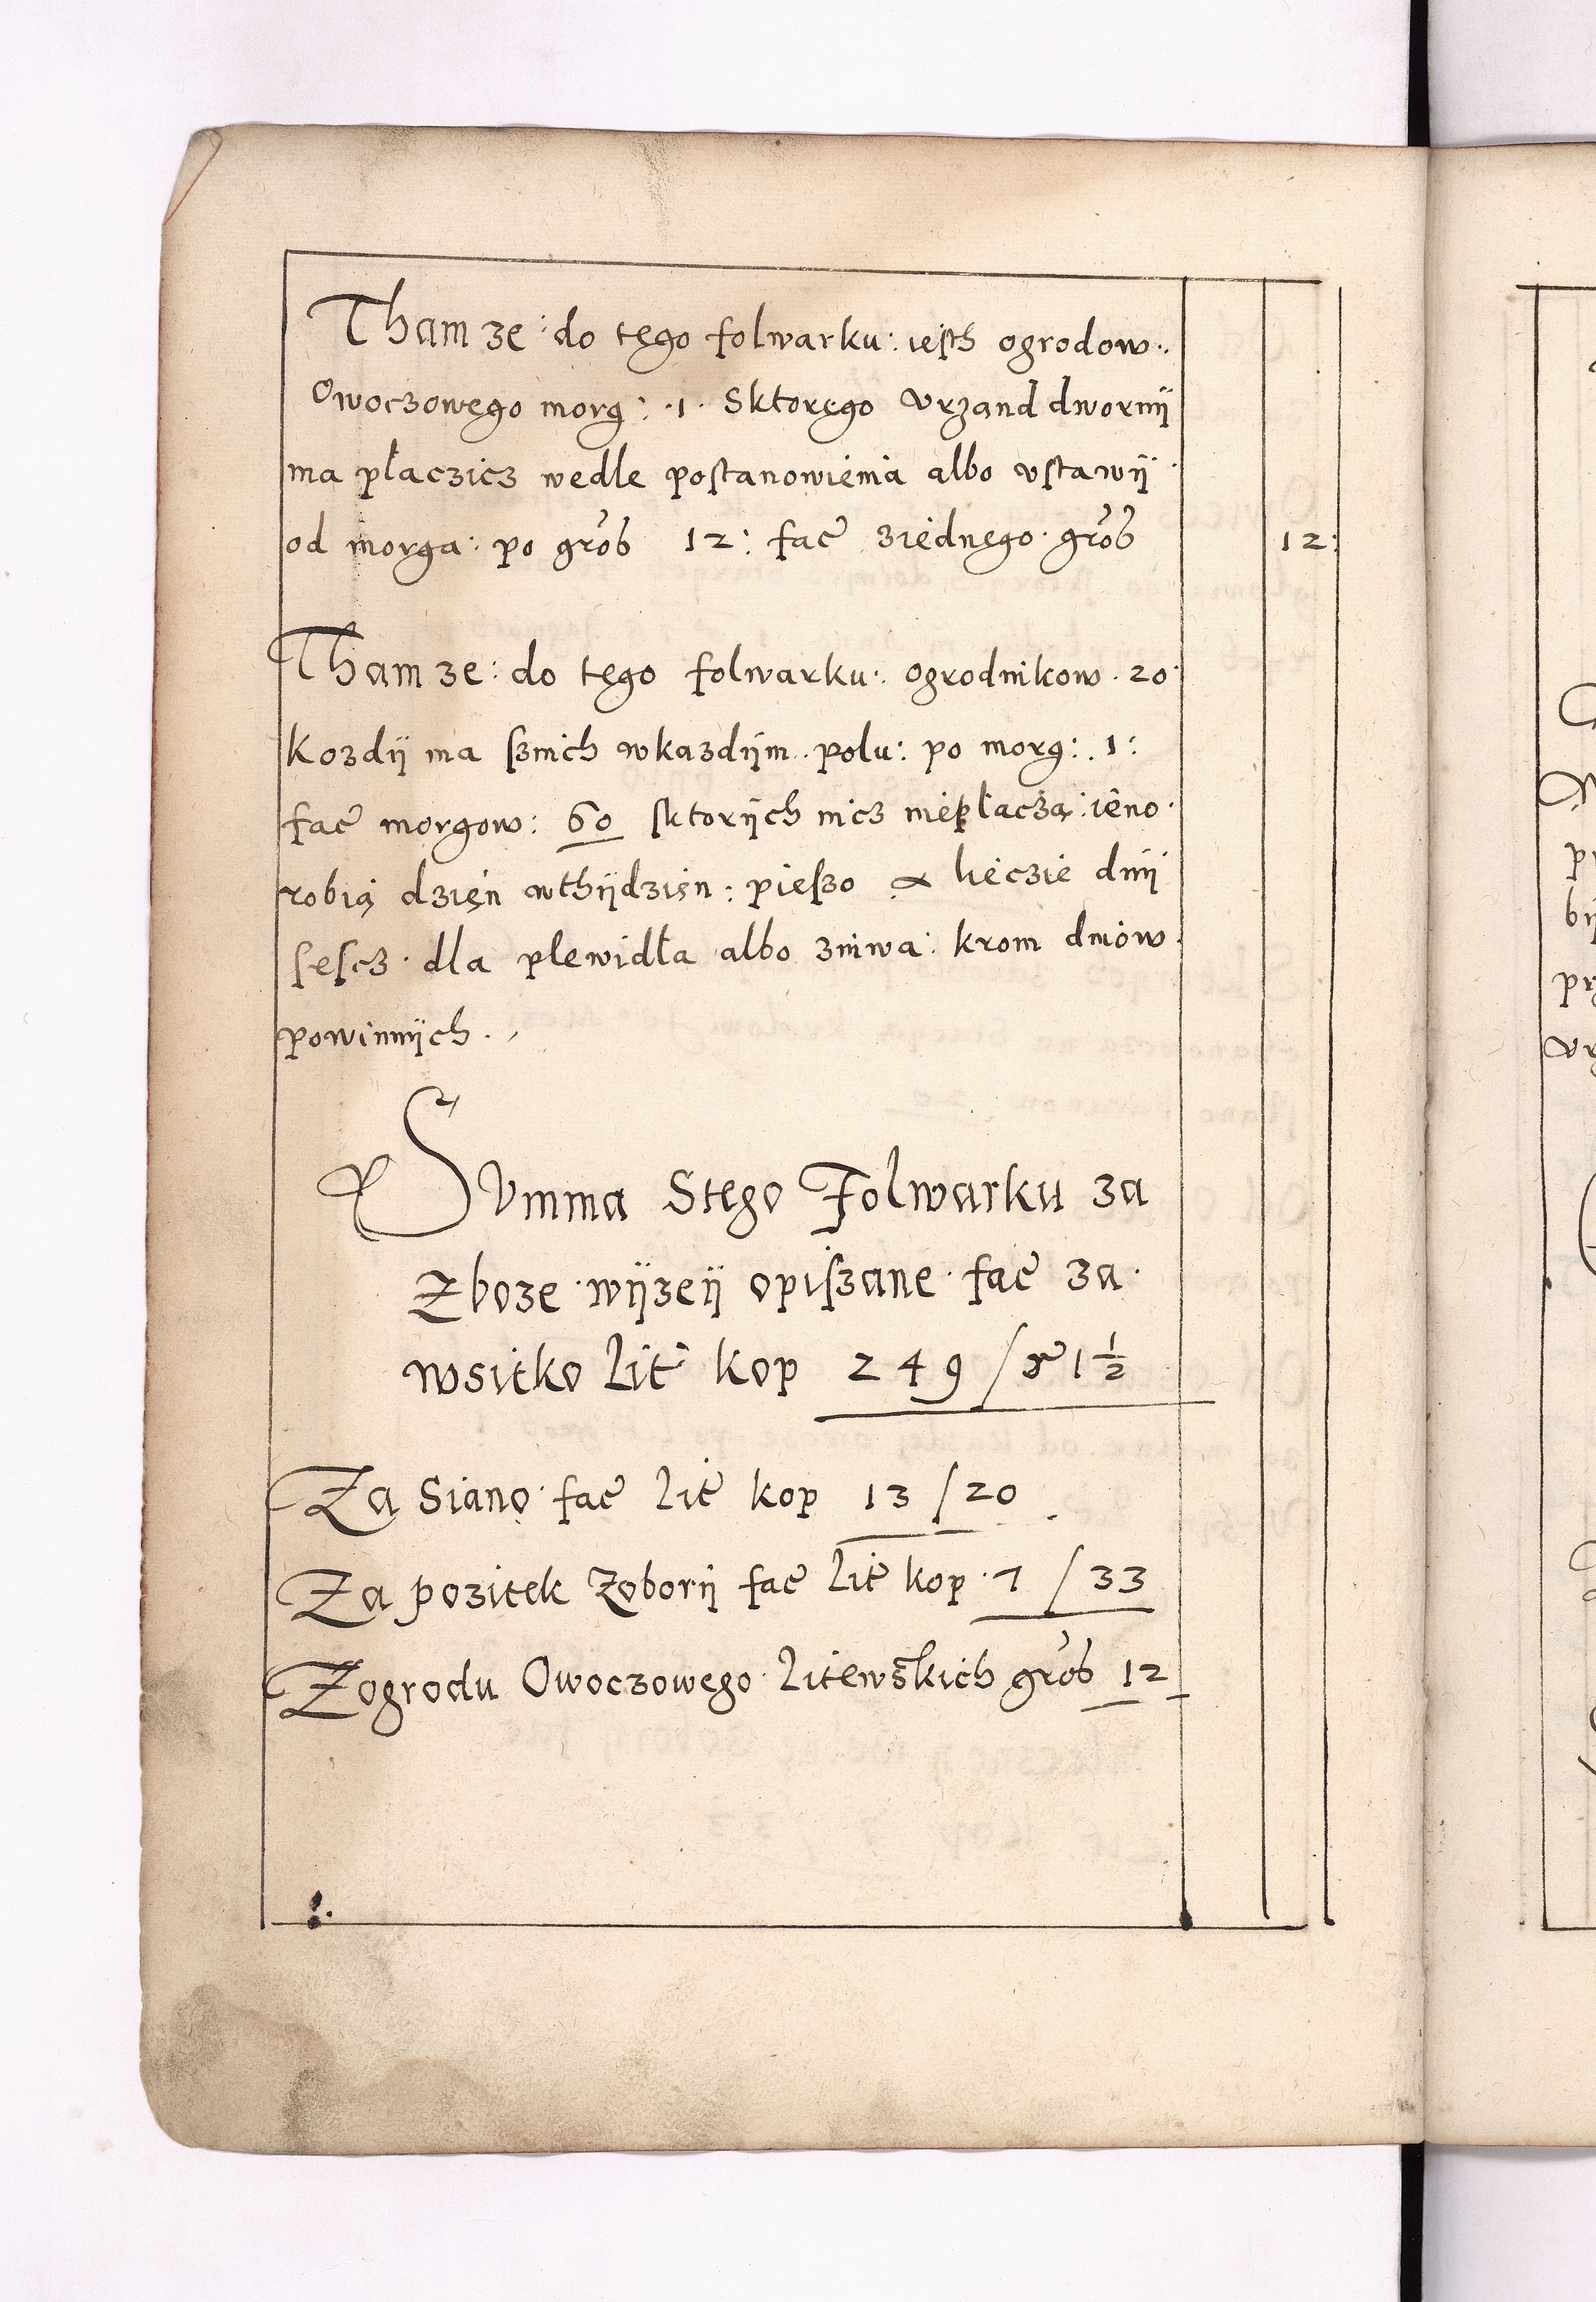 Tham ze: do tęgo folwarku: iesth ogrodow.
Owoczowego morg: .1. Sktoręgo vrzand dwornÿ
ma płaczicz wedle postanowienia albo vstawÿ
od morga: po grob 12: fac ziednęgo grob 12:
Tham ze: do tęgo folwarku: ogrodnikow. 20.
Kozdÿ ma sznich wkazdÿm polu: po morg: 1:
fac morgow: 60 sktorÿch nicz niepłaczą: ieno
robią dzięń wthÿdzięn: pieszo & lieczie dnÿ
sescz. dla plewidła albo zniwa: krom dniow
powinnÿch.
Svmma Stego Folwarku za
Zboze wÿzeÿ opiszane fac za
wsitko Lit kop 249 / gr 1 1/2
Za Siano fac Lit kop 13 / 20
Za pozitek Zoborÿ fac Lit kop 7 / 33
Zogrodu Owoczowego Litewskich grob 12